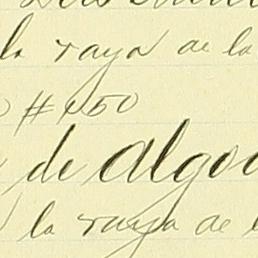 la raya de la
#1,50
de algod
la raya de l